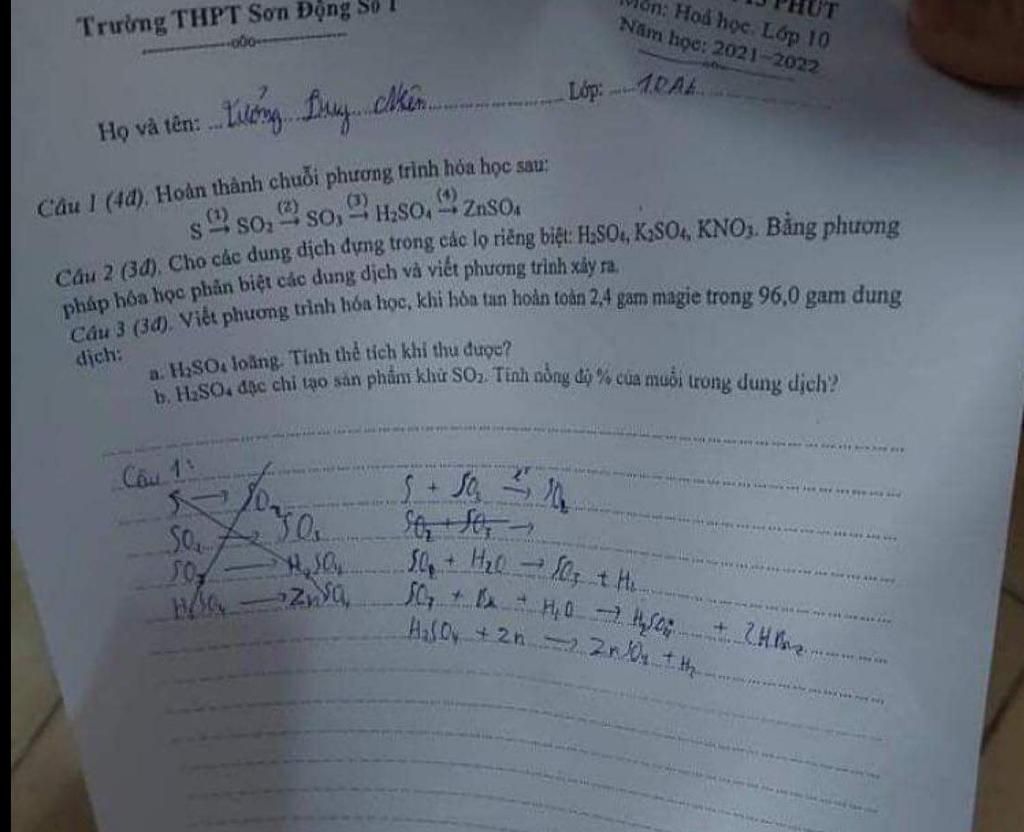 Trường THPT Sơn Động Số 1
PHÚT
Môn: Hoá học. Lớp 10
Năm học: 2021-2022
Họ và tên: Duy Lớp: 10A6
Câu 1 (4đ). Hoàn thành chuỗi phương trình hóa học sau:
S (1)→ SO₂ (2)→ SO₃ (3)→ H₂SO₄ (4)→ ZnSO₄
Câu 2 (3đ). Cho các dung dịch đựng trong các lọ riêng biệt: H₂SO₄, K₂SO₄, KNO₃. Bằng phương
pháp hóa học phân biệt các dung dịch và viết phương trình xảy ra.
Câu 3 (3đ). Viết phương trình hóa học, khi hòa tan hoàn toàn 2,4 gam magie trong 96,0 gam dung
dịch:
a. H₂SO₄ loãng. Tính thể tích khí thu được?
b. H₂SO₄ đặc chỉ tạo sản phẩm khử SO₂. Tính nồng độ % của muối trong dung dịch?
Câu 1:
S → SO₂ S + SO₃ t°→ SO₂
SO₂ → SO₃ SO₂ + SO₃ →
SO₃ → H₂SO₄ SO₂ + H₂O → SO₃ + H₂
H₂SO₄ → ZnSO₄ SO₃ + + H₂O → H₂SO₄ +
H₂SO₄ + Zn → ZnSO₄ + H₂